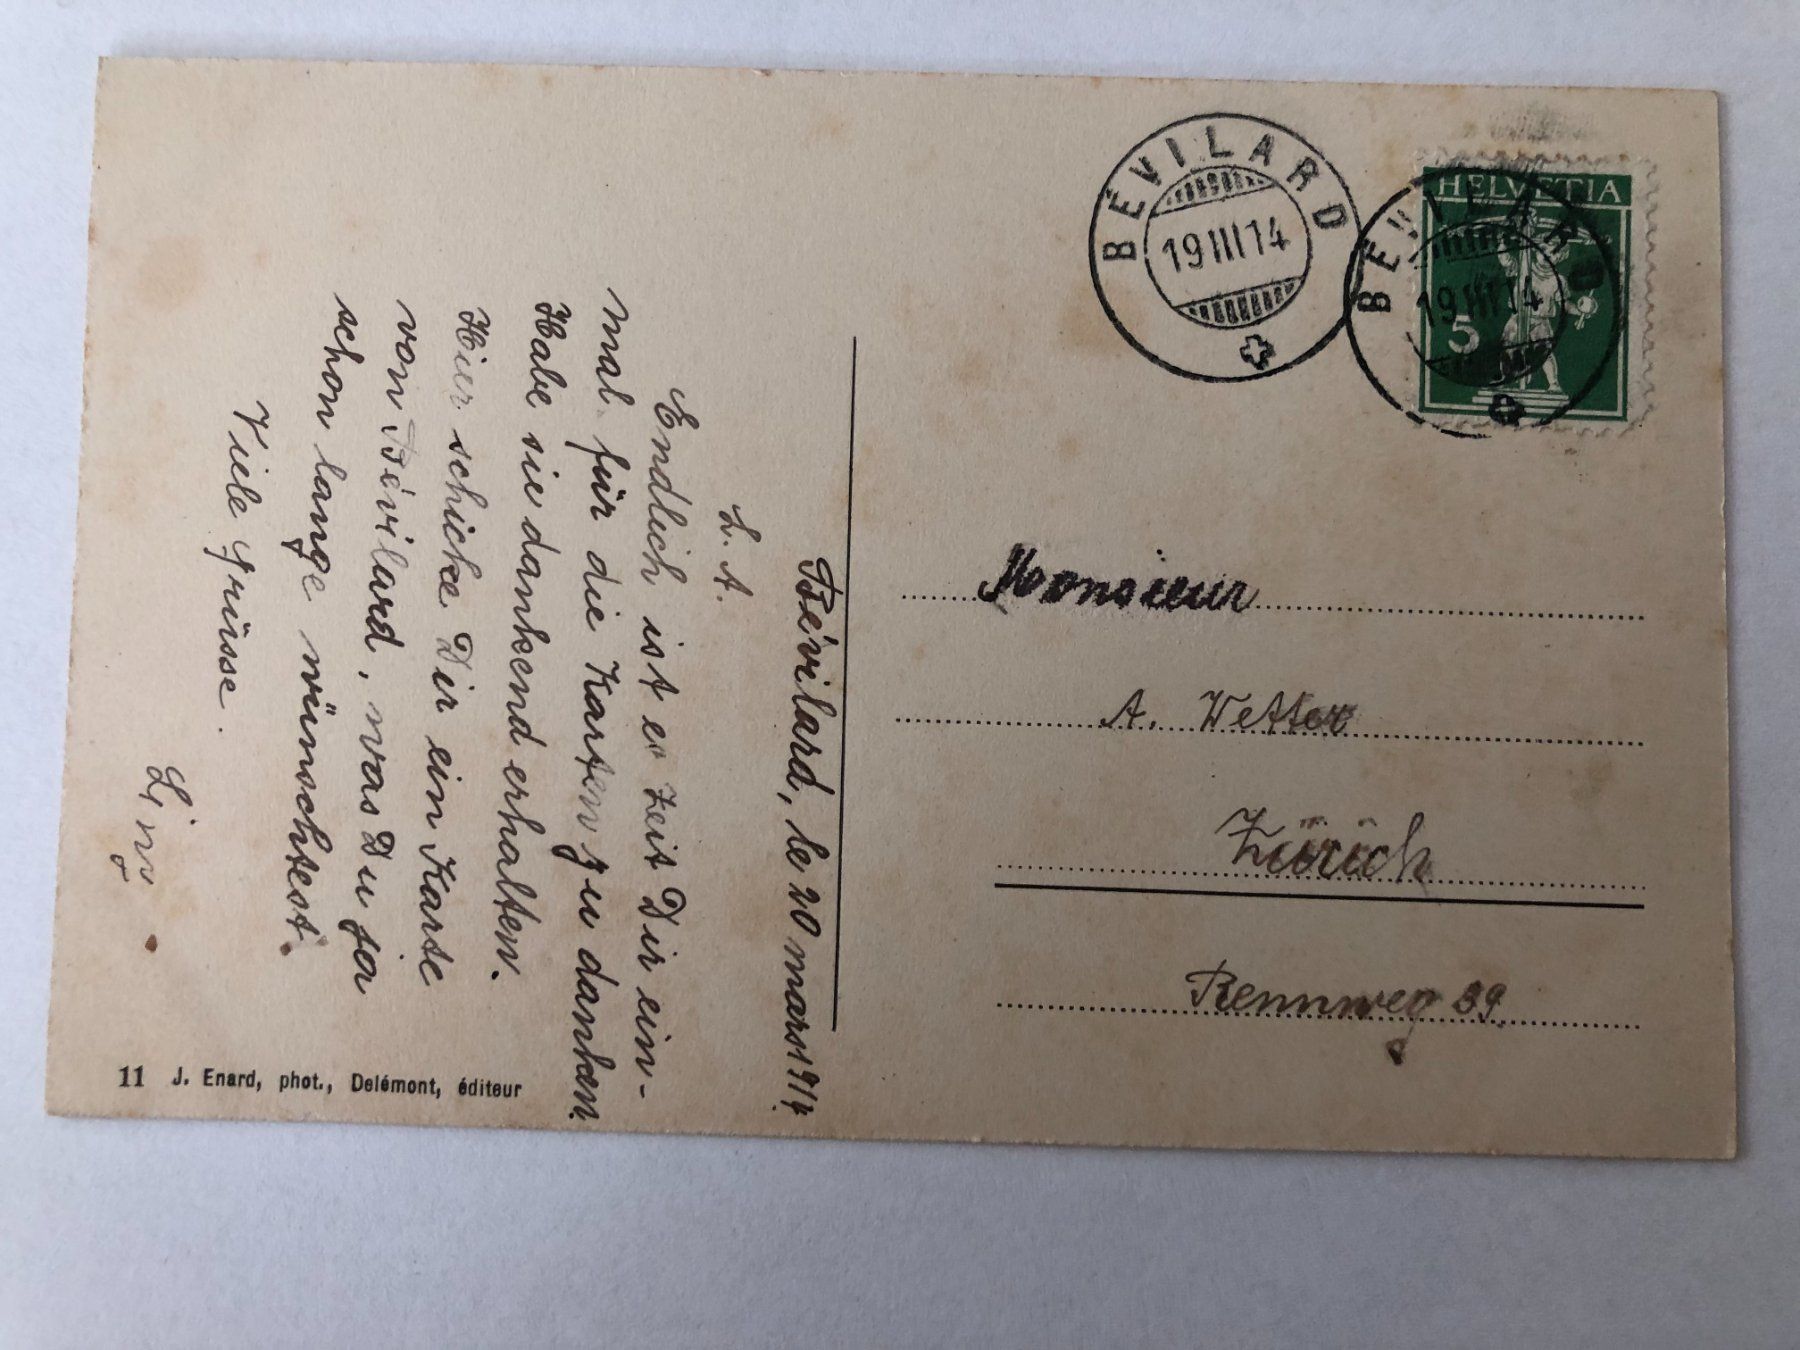 Bévilard, le 20 mars 1914.
L. A.
Endlich ist es Zeit Dir ein-
mal für die Karten zu danken.
Habe sie dankend erhalten.
Hier schicke Dir ein Karte
von Bévilard, was Du ja
schon lange wünschtest.
Viele Grüsse.
BÉVILARD
19 III 14
BÉVILARD
19 III 14
HELVETIA
5
Monsieur
A. Wetter
Zürich
Rennweg 39.
11 J. Enard, phot., Delémont, éditeur